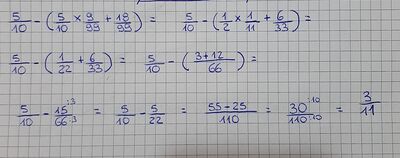 5/10 - (5/10 × 9/99 + 18/99) = 5/10 - (1/2 × 1/11 + 6/33) =
5/10 - (1/22 + 6/33) = 5/10 - (3+12/66) =
5/10 - 15:3/66:3 = 5/10 - 5/22 = 55-25/110 = 30:10/110:10 = 3/11